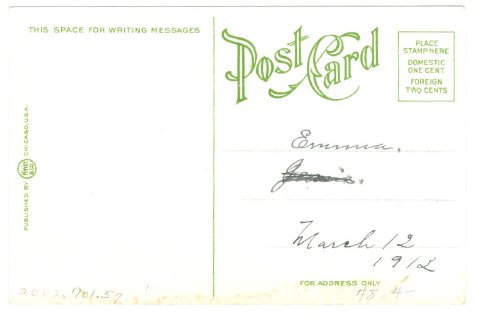 THIS SPACE FOR WRITING MESSAGES
Post Card
PLACE
STAMP HERE
DOMESTIC
ONE CENT
FOREIGN
TWO CENTS
PUBLISHED BY
CHICAGO, U.S.A.
Emma.
March 12
1912
FOR ADDRESS ONLY
2002.701.57